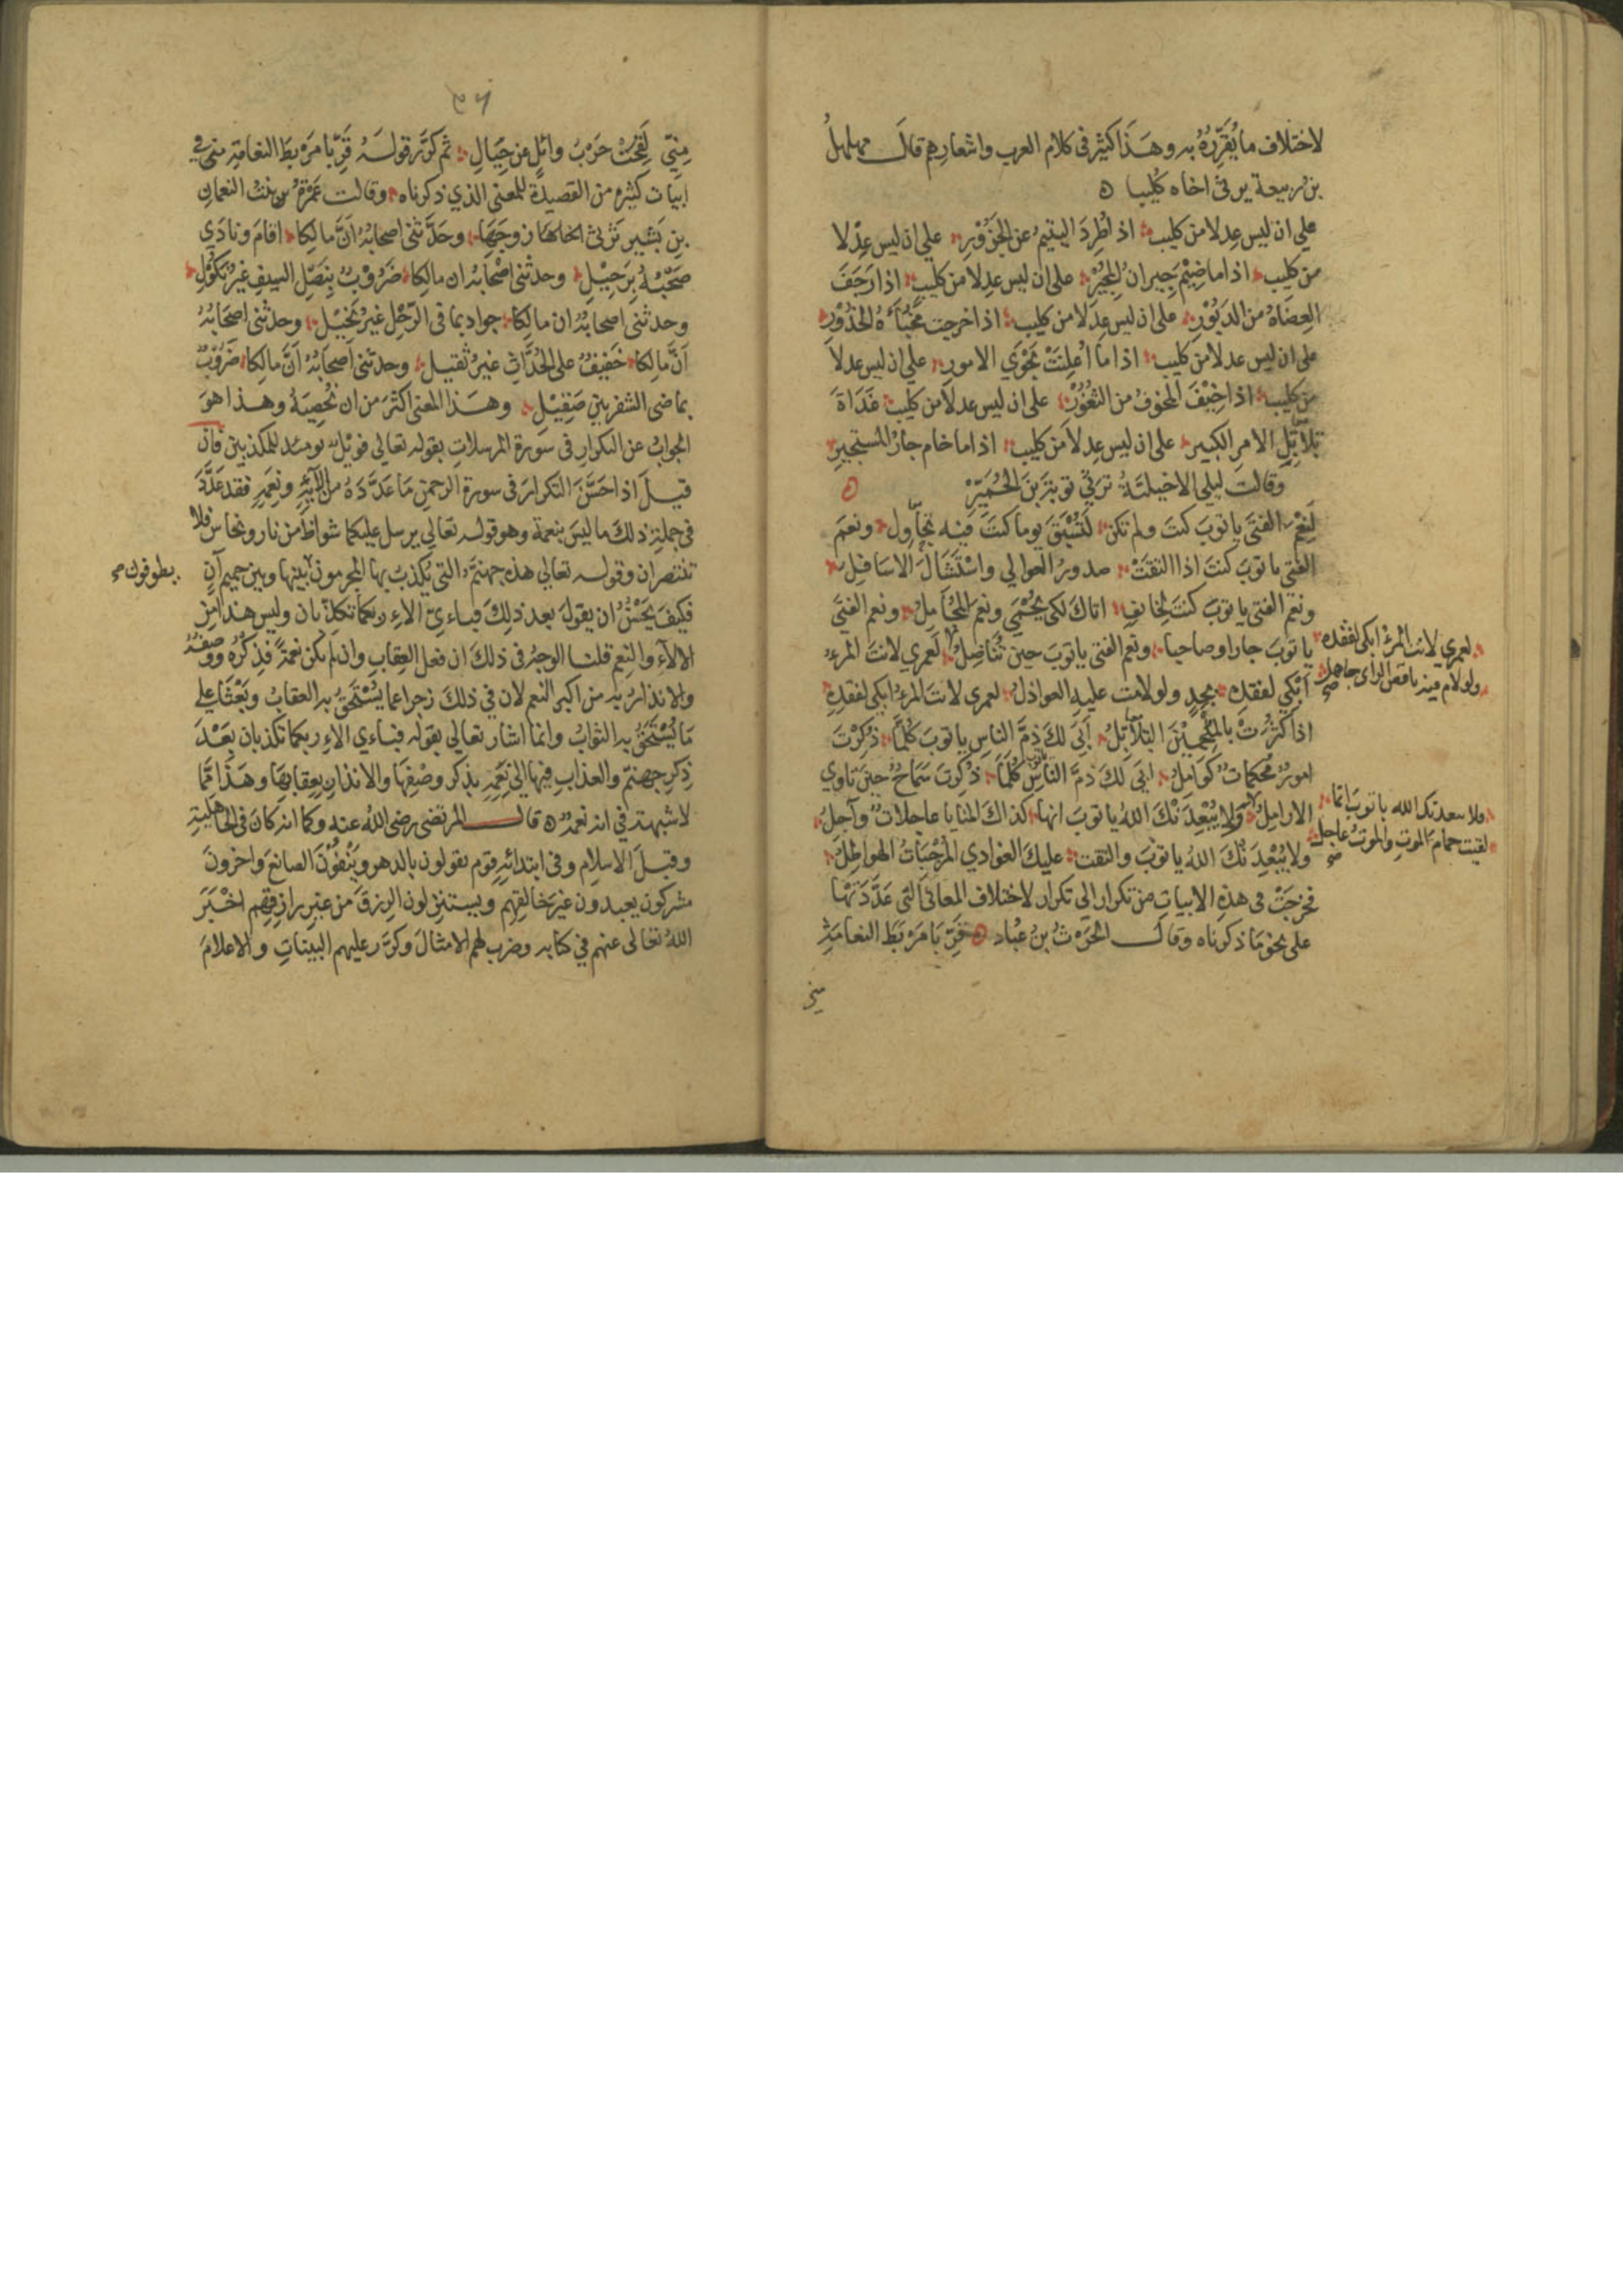 لاختلاف ما يُقَرِّرُهُ به وهَذَا كثير فى كلام العرب واشعارهم قالَ مهلهلُ
بن ربيعة يرثى اخاه كُليبا
على ان ليس عدلا من كليب اذا طُرِدَ اليتيمُ عن الجَزُوْرِ على ان ليس عِدْلا
من كليب اذا ما ضِيْمَ جِيرانُ المُجِيْرِ على ان ليس عدلا من كليب اذا رَجَفَ
العِضَاهُ من الدَبُوْرِ على ان ليس عِدلا من كليب اذا خرجت مُخَبَّأَةُ الخُدُوْرِ
على ان ليس عدلا من كليب اذا ما اُعْلِنَتْ نَجْوَي الامورِ على ان ليس عدلا
من كليب اذا خِيْفَ المخوفُ من الثُغُوْرِ على ان ليس عدلا من كليب غَدَاةَ
تَلاَتِلِ الامرِ الكبيرِ على ان ليس عِدلا من كليب اذا ما خام جارُ المستجيرِ
وقالت ليلى الاخيليَّةُ ترثي توبةَ بنَ الحُمَيِّرْ
لَنِعْمَ الفتَى يا توبَ كنتَ ولم تكن لَتُسْبَقَ يوما كنتَ فيه تُجاوِل ونعمَ
الفتى يا توبَ كنتَ اذا التقَتْ صدورُ العوالي واسْتَشَالَ الاسَافِلُ
ونعم الفتى يا توبَ كنتَ لخايفٍ اتاكَ لكى يُحْمَي ونعم المُجَامِلُ ونعم الفتَى
يا توبَ جارا وصاحبا ونعم الفتى يا توبَ حين تُنَاضِلُ لَعمري لانتَ المرءُ
لعمري لانت المرءُ ابكى لفقده
ولو لام فيه ناقص الراى جاهل صح
اَبْكي لفقدِه بجِدٍ ولو لامت عليه العواذلُ لعمرى لانتَ المرءُ ابكى لفقدِهِ
اذا كثُرَتْ بالمُلْجَمِيْنَ التلاتِلُ اَبَي لكَ ذمَّ الناسِ يا توبَ كُلَّمَا ذُكِرْتَ
امورٌ مُحْكمَاتٌ كَوَامِلُ ابَي لكَ ذمَّ الناسِ يا توب كُلَّمَا ذُكِرتَ سَمَاحٌ حينَ تاوي
الارامِلُ ولا يُبْعِدَنْكَ اللهُ يا توبَ انها كذاكَ المنايا عاجلاتٌ وآجلُ
فلا يبعدنك الله يا توبَ انما
لقيت حِمامَ الموتِ والموتُ عاجل صح
ولا يُبْعِدَنْكَ اللهُ يا توبَ والتقت عليكَ الغوادي المُرْجَبَاتُ الهَواطِلُ
فخرجَتْ فى هذهِ الابياتِ من تكرار الى تكرار لاختلاف المعانى التى عَدَّدَتْهَا
على نحو مَا ذكرناه وقالَ الحَرِثُ بنُ عُباد قَرِّبَا مَرْبَطَ النعامَةِ
مني
٥٦
مِنِّي لَقِحَتْ حَرْبُ وائلٍ عن حِيَالِ ثم كرَّر قولَهُ قَرِّبا مَرْبطَ النعامَةِ منى في
ابيات كثيره من القصيدةِ للمعنى الذي ذكرناه وقالت عَمْرَةُ بنتُ النعمانِ
بنِ بَشيرٍ تَرْثى زوجَهَا وحَدَّثنى اصحابُهُ انَّ مالكا اقامَ ونادَي
صَحْبُهُ بِرَحِيْلِ وحدثنى اصْحَابُه ان مالكا ضَرُوْبٌ بِنَصْلِ السيفِ غيرُ نكُوْلِ
وحدثنى اصحابُهُ ان مالِكا جواد بما فى الرَحْلِ غيرُ بَخِيْلِ وحدثنى اصحَابُهُ
اَنَّ مالكا خَفيفٌ على الحُدَّاثِ غيرُ ثقيلِ وحدثنى اَصحَابُهُ اَنَّ مالكا ضَرُوْبٌ
بماضى الشفرتينِ صَقِيْلِ وهَذا المعنى اكثرَ من ان نُحْصِيَهُ وهذا هوَ
الجوابُ عن التكرارِ فى سورة المرسلاتِ بقوله تعالي فويْلٌ يومئذ للمكذبين فان
قيلَ اذا حَسُنَ التكرارَ فى سورة الرحمنِ مَا عَدَّدَهُ من الآيهِ ونِعَمِهِ فقد عَدَّدَ
فى جملةِ ذلك ما ليسَ بنعمة وهو قوله تعالي يرسل عليكما شواظ من نار ونحاس فلا
تنتصران وقوله تعالي هذه جهنمُ التى يُكذبُ بها المجرمون بينها وبين حميم آنٍ
يطوفون صح
فكيفَ يَحْسُنُ ان يقولَ بعد ذلِكَ فباءىّ الاءِ ربكما تكذّبان وليس هذا من
الالآءِ والنِعَمِ قلنا الوجهُ فى ذلكَ ان فعل العِقابِ وان لَم يكن نعمةً فذِكْرُه ووصفُهُ
والانذارُ به من اكبر النعم لان في ذلكَ زجرا عما يُسْتَحَقُ به العقابُ وبَعْثًا على
مَا يُسْتَحَقُ به الثوابُ وانما اشار تعالي بقوله فباءي الاءِ ربكما تكذبان بَعْدَ
ذِكرِ جهنمَ والعذابِ فيها الى نِعَمِهِ بذكر وصْفِهَا والانذارِ بِعِقابِهَا وهَذا مّما
لا شبهة في انه نعمةٌ قال المرتضى رضى اللهُ عنه وكما انه كانَ فى الجاهليةِ
وقبلَ الاسلامِ وفى ابتدائِهِ قوم يقولون بالدهرِ ويَنْفُوْنَ الصانعَ واخرونَ
مشركون يعبدون غيرَ خالقِهم ويستنزلون الرزقَ من غيرِ رازقِهم اخْبَرَ
اللهُ تعالى عنهم في كتابه وضرب لهم الامثالَ وكرَّر عليهم البيناتِ والاعلامَ